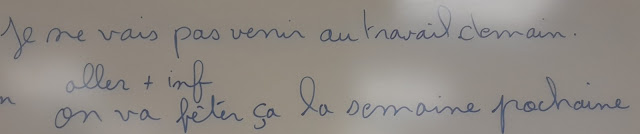 Je ne vais pas venir au travail demain.
aller + inf
n on va fêter ça la semaine prochaine